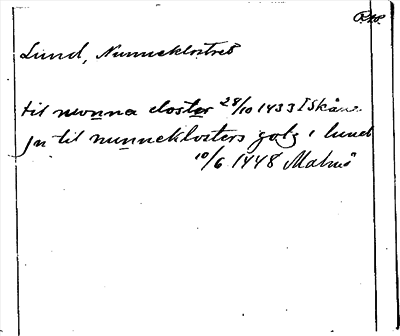 Lund, Nunneklostret
til nwnna closter 28/10 1433 I Skåne
Jn til nunneklosters golz i lund
10/6 1448 Malmö